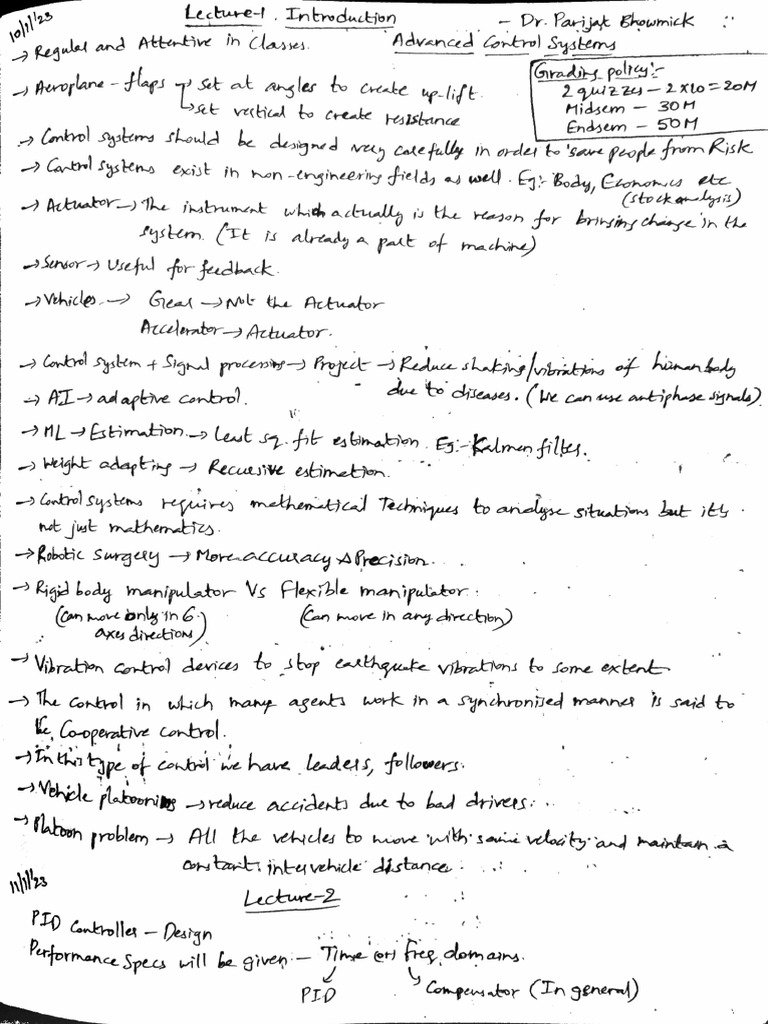 10/1/'23
Lecture-1. Introduction
- Dr. Parijat Bhowmick
Advanced Control Systems
→ Regular and Attentive in Classes.
Grading policy:-
2 quizzes - 2x10=20M
Midsem - 30M
Endsem - 50M
→ Aeroplane - flaps → set at angles to create up-lift.
→ set vertical to create resistance
→ Control systems should be designed very carefully in order to save people from Risk
→ Control systems exist in non-engineering fields as well. Eg:- Body, Economics etc
(stock analysis)
→ Actuator → The instrument which actually is the reason for bringing change in the
system. (It is already a part of machine)
→ Sensor → Useful for feedback.
→ Vehicles → Gear → Not the Actuator
Accelerator → Actuator.
→ Control system + Signal processing → Project → Reduce shaking/vibrations of human body
due to diseases. (We can use antiphase signals)
→ AI → adaptive control.
→ ML → Estimation → Least sq. fit estimation. Eg:- Kalmen filter.
→ Weight adapting → Recursive estimation.
→ Control systems requires mathematical Techniques to analyse situations but it's
not just mathematics.
→ Robotic surgery → More accuracy & Precision.
→ Rigid body manipulator Vs Flexible manipulator.
(Can move only in 6
axes directions)
(Can move in any direction)
→ Vibration control devices to stop earthquake vibrations to some extent
→ The control in which many agents work in a synchronised manner is said to
be Co-operative control.
→ In this type of control we have leaders, followers.
→ Vehicle platooning → reduce accidents due to bad drivers.
→ Platoon problem → All the vehicles to move with same velocity and maintain a
constant intervehicle distance.
11/1/'23
Lecture-2
PID Controller - Design
Performance Specs will be given - Time (or) freq. domains.
PID
Compensator (In general)